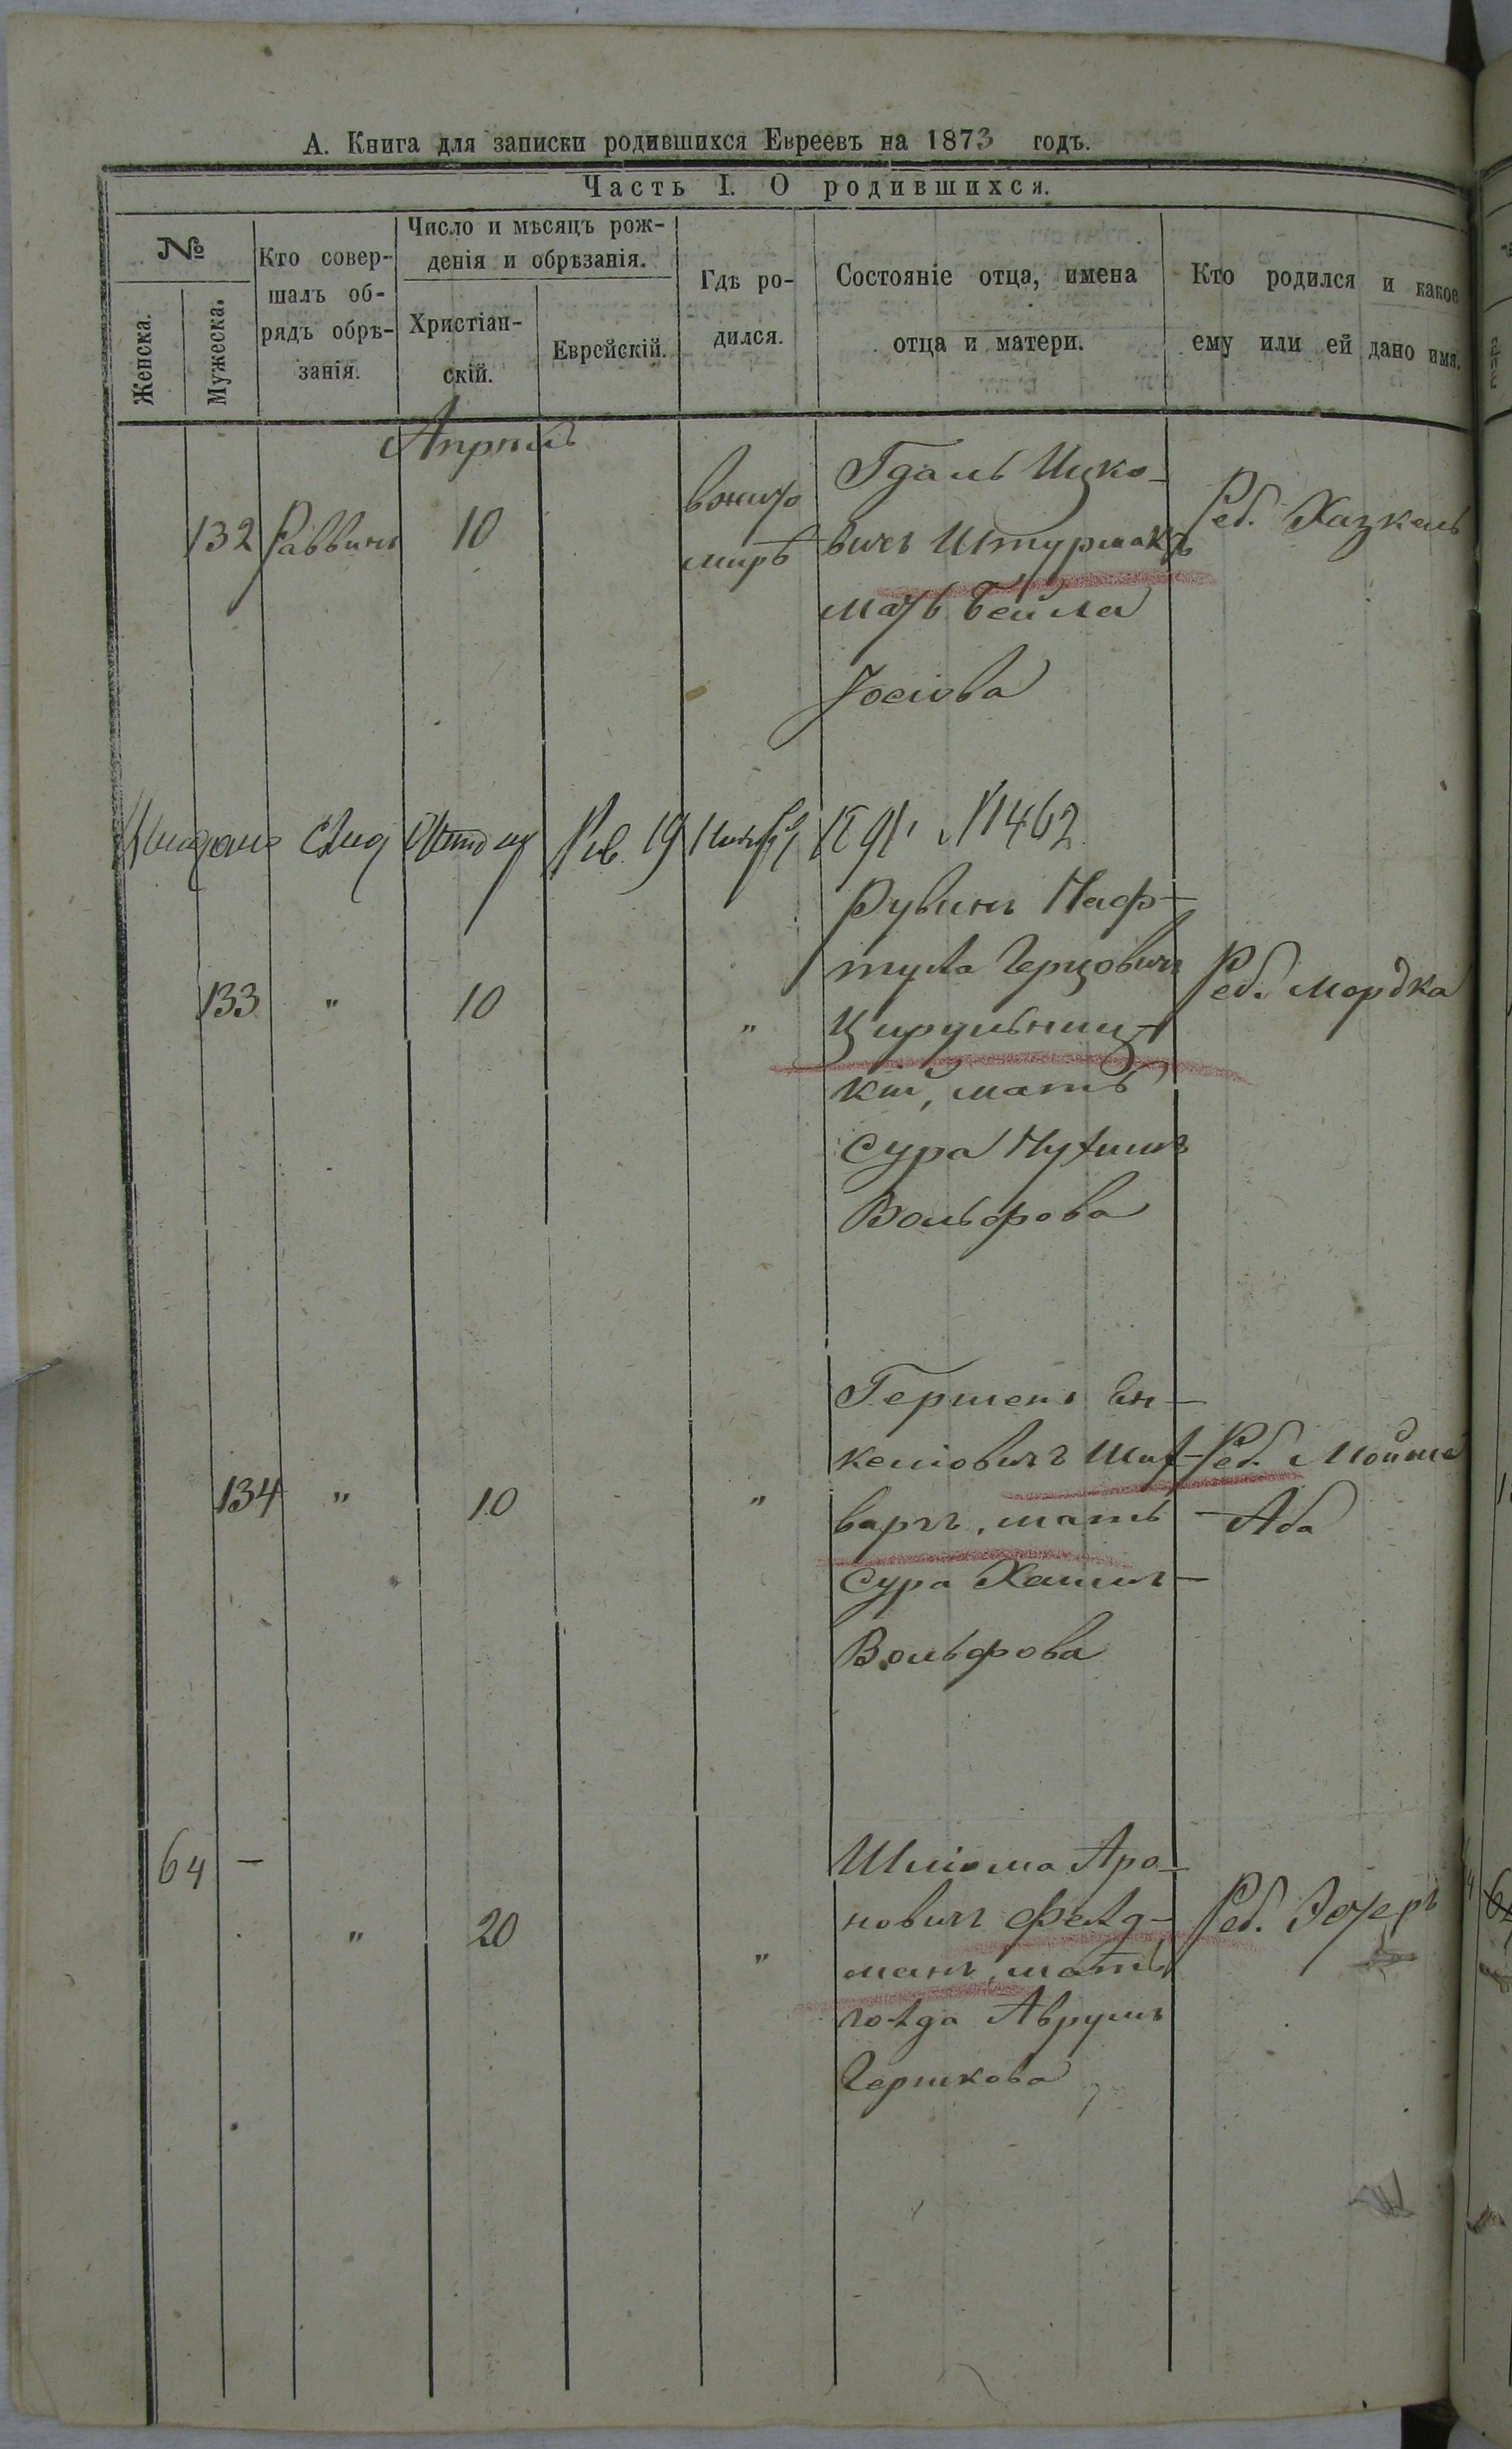 А. Книга для записки родившихся Евреевъ на 1873 годъ.
Часть I. О родившихся.
№
Женска.
Мужеска.
Кто совер-
шалъ об-
рядъ обрѣ-
занія.
Число и мѣсяцъ рож-
денія и обрѣзанія.
Христіан-
скій.
Еврейскій.
Гдѣ ро-
дился.
Состояніе отца, имена
отца и матери.
Кто родился и какое
ему или ей дано имя.
Апрѣль
132
Раввинъ
10
вжито
мирѣ
Гдаль Ицко-
вичъ Штурмакъ
мать Бейла
Іосіова
Реб. Хазкель
19
91 №1462
133
"
10
"
Рувинъ Наф-
тула Герцовичъ
Цирульниц-
кій, мать
Сура
Вольфова
Реб. Мордка
134
"
10
"
Гершенъ Ян-
келіовичъ
варгъ, мать
Сура
Вольфова
Реб. Мойше
Аба
64 —
"
20
"
Шліома Аро-
новичъ Фелд-
манъ, мать
голда Аврумъ
Гершкова
Реб. Эстеръ